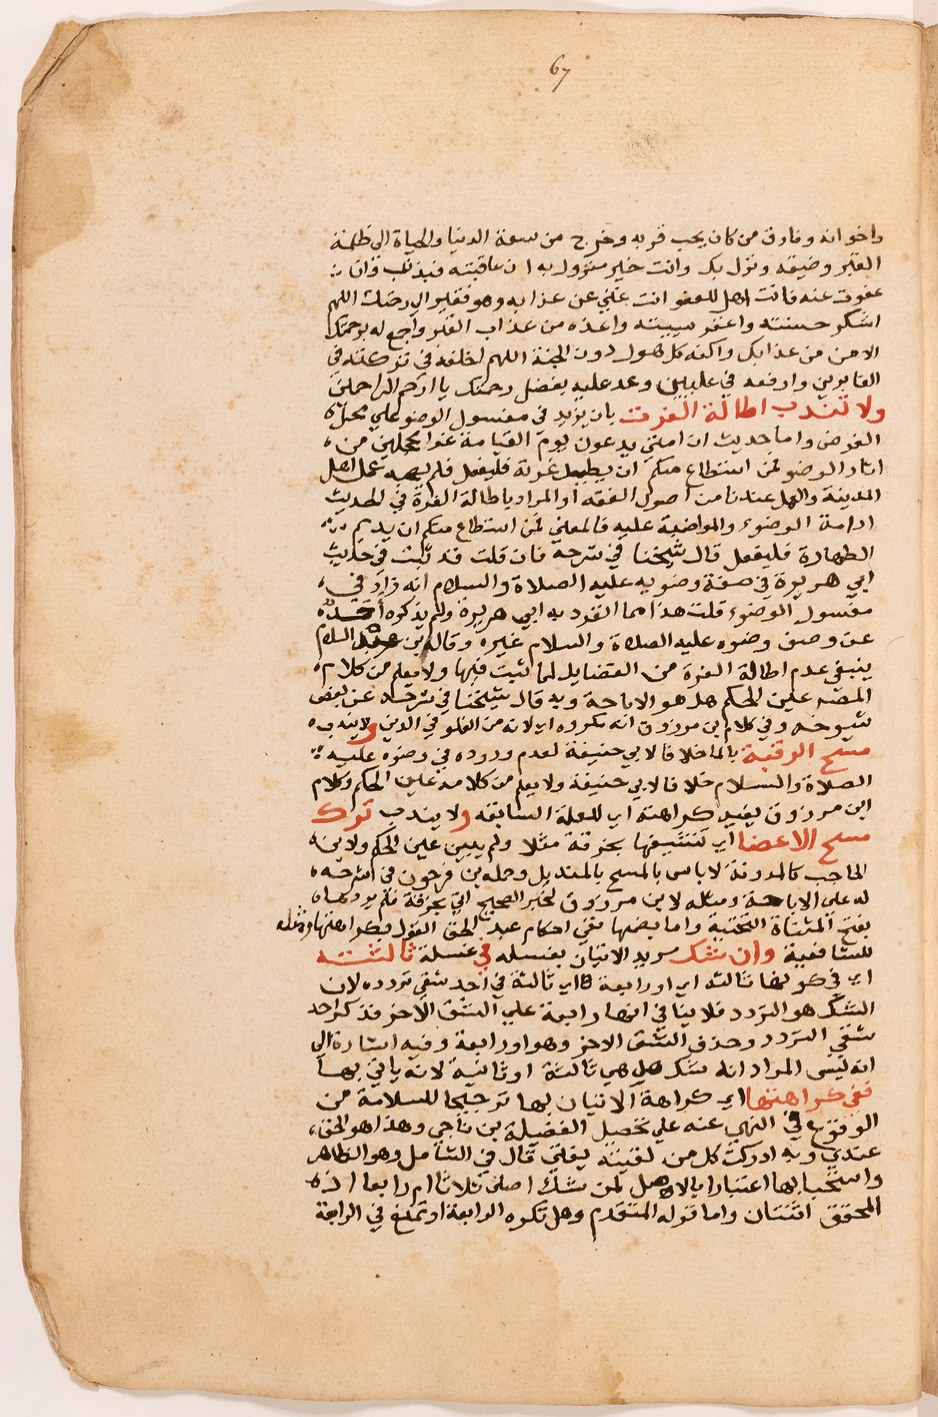 67
واخوانه وفارق من كان يحب قربه وخرج من سعة الدنيا والحياة الى ظلمة
القبر وضيقه ونزل بك وانت خير منزول به ان عاقبته فبذنب وان
عفوت عنه فانت اهل للعفو انت غني عن عذابه وهو فقير الى رحمتك اللهم
اشكر حسنته واغفر سييته واعذه من عذاب القبر واجمع له برحمتك
الامن من عذابك واكفه كل هول دون الجنة اللهم اخلفه في تركته في
الغابرين وارفعه في عليين وعد عليه بفضل رحمتك يا ارحم الراحمين
ولا تندب اطالة الغرت بان يزيد في مغسول الوضو علي محل
الفرض واما حديث ان امتي يدعون يوم القيامة غرا محجلين من
اثار الوضو لمن استطاع منكم ان يطيل غرته فليفعل فلم يصحبه عمل اهل
المدينة والعمل عندنا من اصول الفقه او المراد باطالة الغرة في الحديث
ادامة الوضوء والمواضبة عليه فالمعني لمن استطاع منكم ان يديم
الطهارة فليفعل قال شيخنا في شرحه فان قلت قد ثبت في حديث
ابي هريرة في صفة وضويه عليه الصلاة والسلام انه زاد في
مغسول الوضوء قلت هذا مما انفرد به ابي هريرة ولم يذكره احد
عن وصف وضوه عليه الصلاة والسلام غيره وقال بن عبد السلام
ينبغي عدم اطالة الغرة من الفضايل لما ثبت فيها ولا يعلم من كلام
المصه عين الحكم هل هو الاباحة وبه قال شيخنا في شرحه عن بعض
شيوخه وفي كلام بن مرزوق انه مكروه اي لانه من الغلو في الدين ولا يندب
مسح الرقبة بالما خلافا لابي حنيفة لعدم وروده في وضوه عليه
الصلاة والسلام خلافا لابي حنيفة ولا يعلم من كلامه عين الحكم وكلام
ابن مرزوق يفيد كراهته اي للعلة السابقه ولا يندب ترك
مسح الاعضا اي تنشيفها بخرقة مثلا ولم يبين عين الحكم ولابن
الحاجب كالمدونة لا باس بالمسح بالمنديل وحمله بن فرحون في شرحه
له علي الاباحة ومثله لابن مرزوق لخبر الصحيح اتي بخرقة فلم يردها
بفتح المثناة التحتية واما بضمها ففي احكام عبد الحق القول بكراهتها ومثله
للشافعية وان شك مريد الاتيان بغسله في غسلة ثالثته
اي في كونها ثالثه اي او رابعة اي ثالثة في احد شقي تردده لان
الشك هو التردد فلا ينافي انها رابعة علي الشق الاخر فذكر احد
شقي التردد وحذف الشق الاخر وهو او رابعة وفيه اشارة الى
انه ليس المراد انه شك هل هي ثالثة او ثانية لانه ياتي بها
ففي كراهتها اي كراهة الاتيان بها ترجيحا للسلامة من
الوقوع في النهي عنه علي تحصيل الفضيلة بن ناجي وهذا هو الحق
عندي وبه ادركت كل من لقيته يفتي قال في الشامل وهو الظاهر
واستحبابها اعتبارا بالاصل لمن شك اصلى ثلاثا ام رابعا اذ
المحقق اثنتان واما قوله المتقدم وهل تكره الرابعة او تمنع في الرابعة